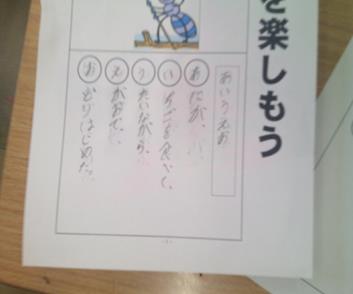 を楽しもう
あいうえお
ありが、
いちごを食べて、
うたいながら、
えがおで、
おどりはじめた。